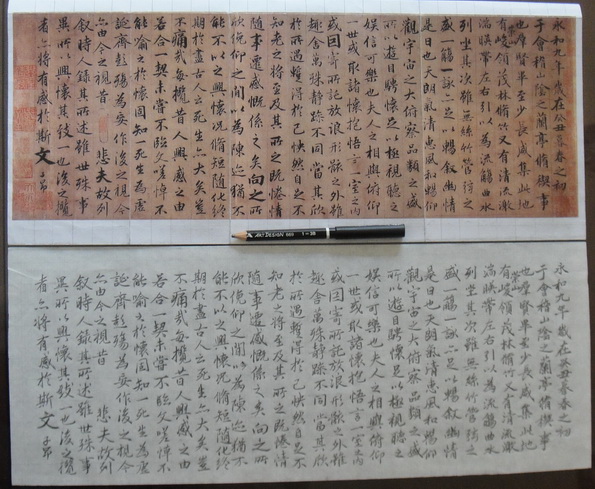 永和九年歲在癸丑暮春之初
于會稽山陰之蘭亭脩禊事
也群賢畢至少長咸集此地
有崇山峻領茂林脩竹又有清流激
湍暎帶左右引以為流觴曲水
列坐其次雖無絲竹管弦之
盛一觴一詠亦足以暢敘幽情
是日也天朗氣清惠風和暢仰
觀宇宙之大俯察品類之盛
所以遊目騁懷足以極視聽之
娛信可樂也夫人之相與俯仰
一世或取諸懷抱悟言一室之內
或因寄所託放浪形骸之外雖
趣舍萬殊靜躁不同當其欣
於所遇蹔得於己怏然自足不
知老之將至及其所之既惓情
隨事遷感慨係之矣向之所
欣俛仰之間以為陳迹猶不
能不以之興懷況脩短隨化終
期於盡古人云死生亦大矣豈
不痛哉每攬昔人興感之由
若合一契未嘗不臨文嗟悼不
能喻之於懷固知一死生為虛
誕齊彭殤為妄作後之視今
亦由今之視昔 悲夫故列
敘時人錄其所述雖世殊事
異所以興懷其致一也後之攬
者亦將有感於斯文 子昂
ART DESIGN 660 1-2B
永和九年歲在癸丑暮春之初
于會稽山陰之蘭亭脩禊事
也群賢畢至少長咸集此地
有崇山峻領茂林脩竹又有清流激
湍暎帶左右引以為流觴曲水
列坐其次雖無絲竹管弦之
盛一觴一詠亦足以暢敘幽情
是日也天朗氣清惠風和暢仰
觀宇宙之大俯察品類之盛
所以遊目騁懷足以極視聽之
娛信可樂也夫人之相與俯仰
一世或取諸懷抱悟言一室之內
或因寄所託放浪形骸之外雖
趣舍萬殊靜躁不同當其欣
於所遇蹔得於己怏然自足不
知老之將至及其所之既惓情
隨事遷感慨係之矣向之所
欣俛仰之間以為陳迹猶不
能不以之興懷況脩短隨化終
期於盡古人云死生亦大矣豈
不痛哉每攬昔人興感之由
若合一契未嘗不臨文嗟悼不
能喻之於懷固知一死生為虛
誕齊彭殤為妄作後之視今
亦由今之視昔 悲夫故列
敘時人錄其所述雖世殊事
異所以興懷其致一也後之攬
者亦將有感於斯文 子昂